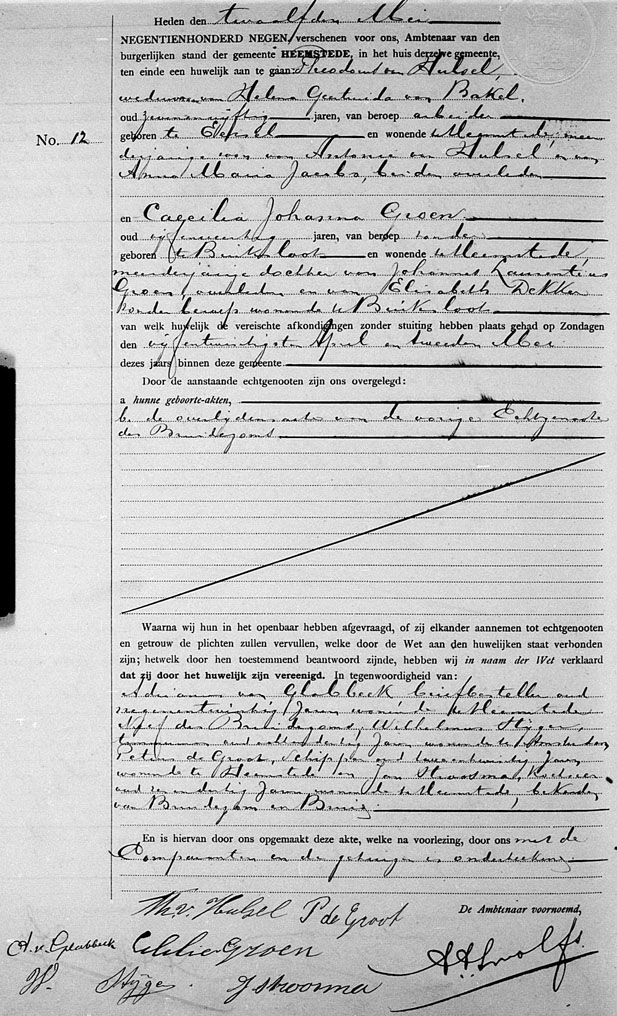 Heden den twaalfden Mei
NEGENTIENHONDERD NEGEN, verschenen voor ons, Ambtenaar van den
burgerlijken stand der gemeente HEEMSTEDE, in het huis derzelve gemeente,
ten einde een huwelijk aan te gaan: Theodorus van Hulsel,
weduwnaar van Helena Geertruida van Bakel,
No. 12
oud jaren, van beroep arbeider
geboren te Eersel en wonende te Heemstede, meer
derjarige zoon van Antonie van Hulsel en van
Anna Maria Jacobs, beiden overleden
en Caecilia Johanna Groen
oud jaren, van beroep zonder
geboren te Buiksloot en wonende te Heemstede,
meerderjarige dochter van Johannes Laurentius
Groen, overleden en van Elisabeth Dekker
zonder beroep wonende te Buiksloot
van welk huwelijk de vereischte afkondigingen zonder stuiting hebben plaats gehad op Zondagen
den vijfentwintigsten April en tweeden Mei
dezes jaars binnen deze gemeente
Door de aanstaande echtgenooten zijn ons overgelegd:
a hunne geboorte-akten,
b. de overlijdensacte van de vorige Echtgenoote
des Bruidegoms
Waarna wij hun in het openbaar hebben afgevraagd, of zij elkander aannemen tot echtgenooten
en getrouw de plichten zullen vervullen, welke door de Wet aan den huwelijken staat verbonden
zijn; hetwelk door hen toestemmend beantwoord zijnde, hebben wij in naam der Wet verklaard
dat zij door het huwelijk zijn vereenigd. In tegenwoordigheid van:
Adrianus van Glabbeek briefbesteller oud
negenentwintig Jaren wonende te Heemstede
Neef des Bruidegoms, Wilhelmus Stijger,
timmerman oud achtendertig Jaren wonende te Amsterdam
Petrus de Groot, Schipper oud tweeentwintig Jaren
wonende te Heemstede en Jan Stroosma,
oud dertig Jaren wonende te Heemstede, bekenden
van Bruidegom en Bruid
En is hiervan door ons opgemaakt deze akte, welke na voorlezing, door ons met de
Comparanten en de getuigen is onderteekend
De Ambtenaar voornoemd,
Th. v. Hulsel P de Groot
A. v. Glabbeek Cecilia Groen
W. Stijger J Stroosma